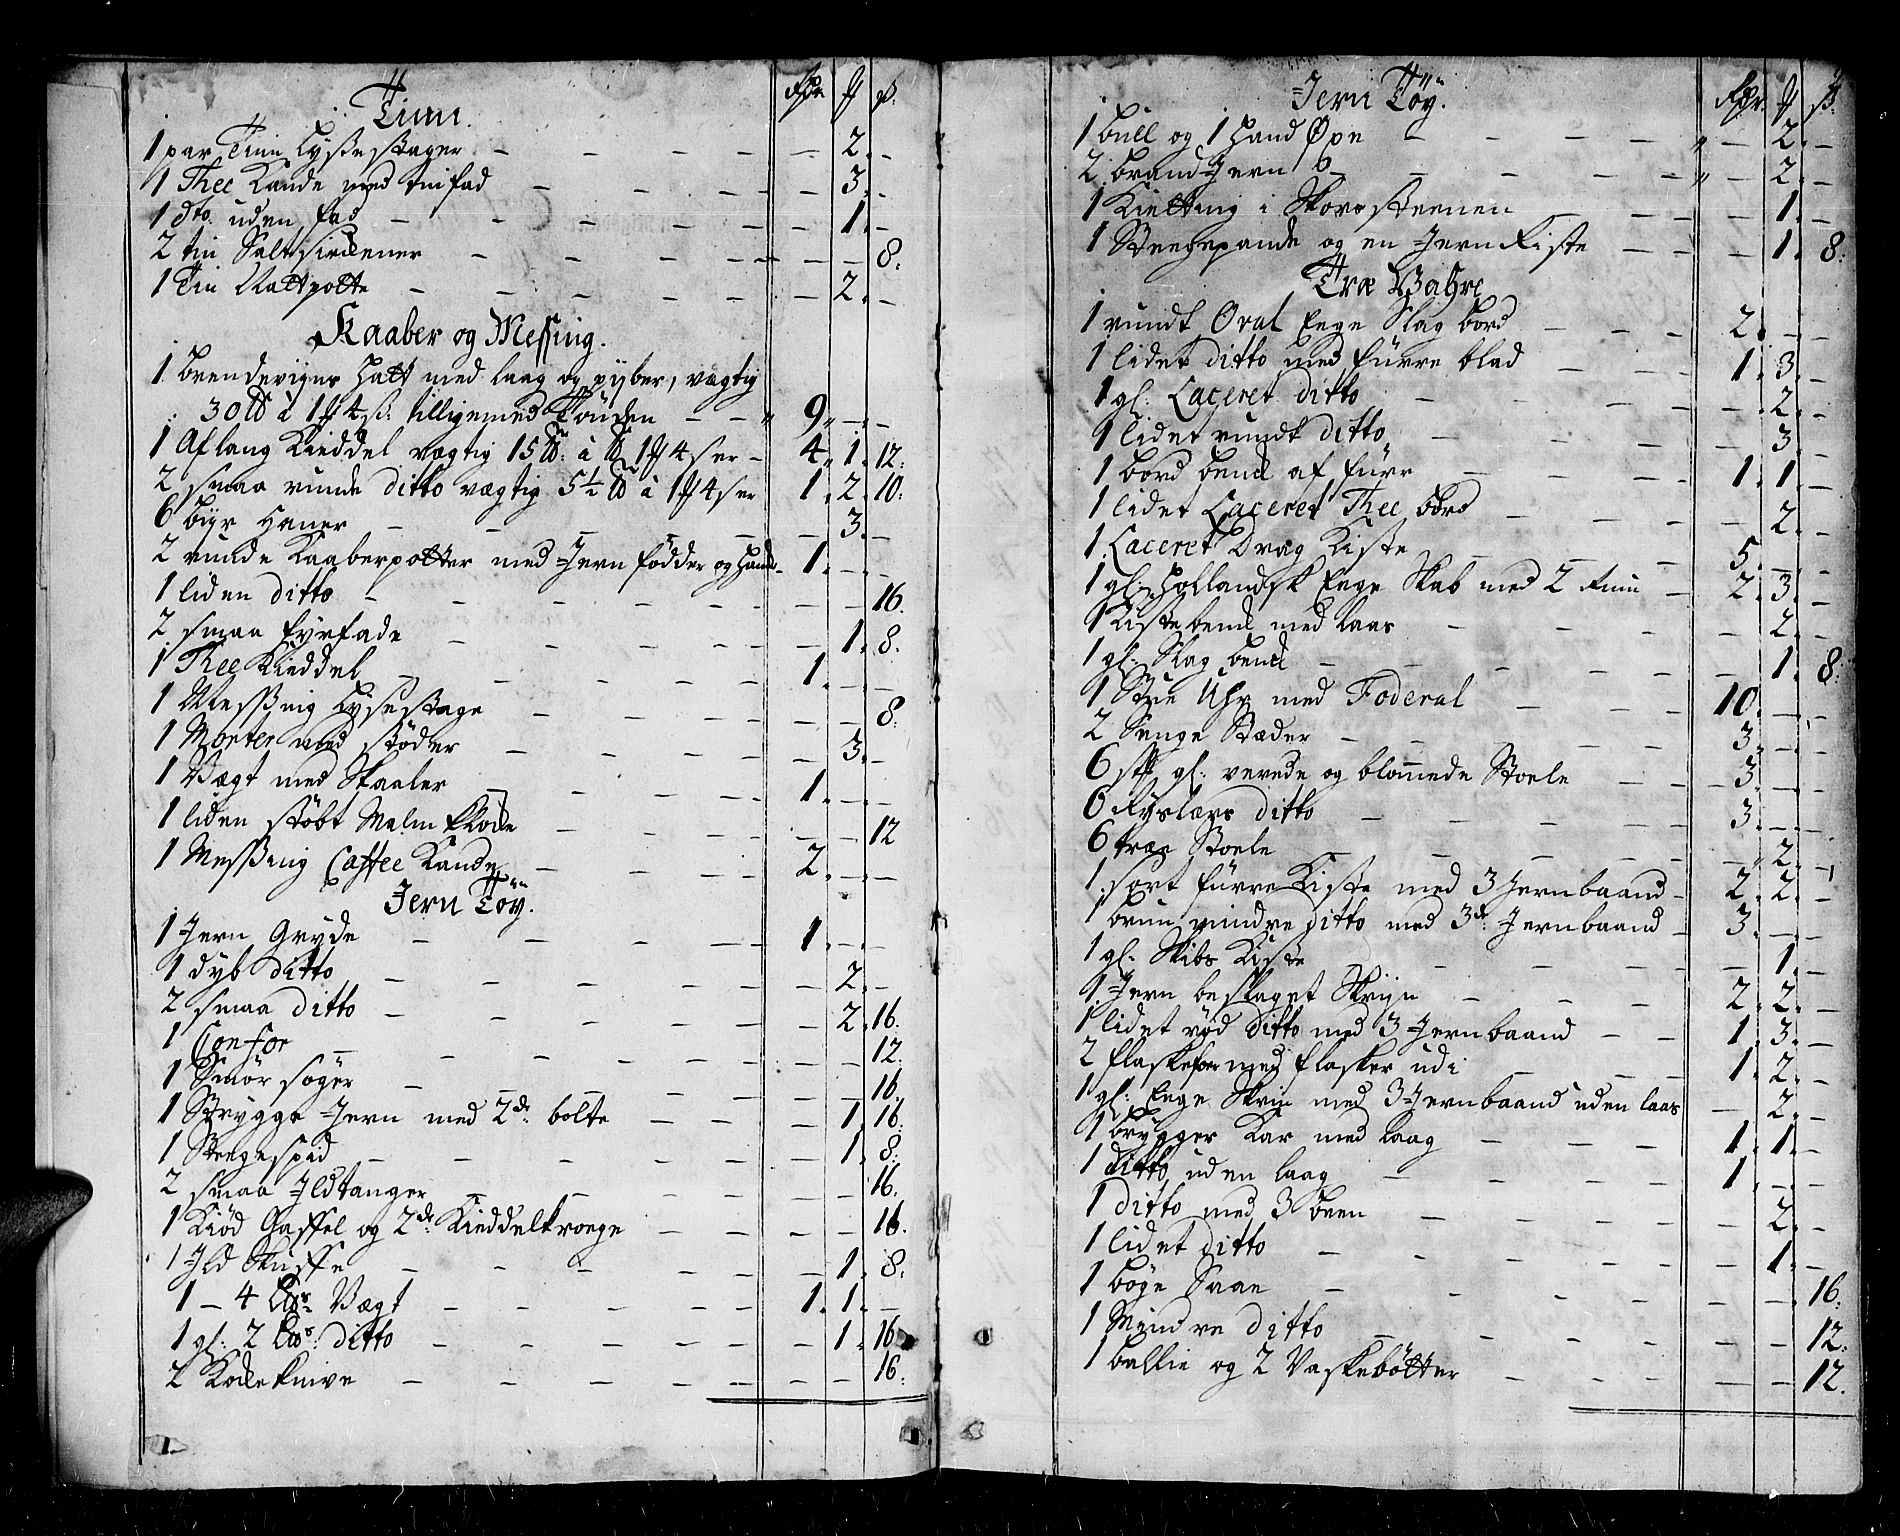 Tinn.
Rdr ℳ ß.
1 par Tinn Lyßestager - - 2. -
1 Thee Kande med tinfad - - 3. -
1 dto. uden fad - - 1. -
2 tin Saltsirdener - - - 8.
1 Tin Nattpotte - - 2. -
Kaaber og Messing.
1 Brendeviins Hatt med laag og pyber, vægtig
30 ℔ à 1 ℳ 4 ß. tilligemed Tønden - 9. - -
1 Aflang Kieddel vægtig 15 ℔: à ℔ 1 ℳ 4 ser - 4. 1. 12.
2 smaa runde ditto vægtig 5½ ℔ à 1 ℳ 4 ser 1. 2. 10.
6 byr Haner - - 3. -
2 runde Kaaberpotter med Jern fødder og Hand - 1. - -
1 liden ditto - - - 16.
2 smaa fyrfade - - 1. 8.
1 Thee Kieddel - 1. - -
1 Messing Lysestage - - - 8.
1 Morter med støder - - 3. -
1 Vægt med Skaaler - 1. - -
1 liden støbt Malm - - 12
1 Messing Caffee Kande - 2. - -
Jern Tøy.
1 Jern Gryde - 1. - -
1 dyb ditto - - 2. -
2 smaa ditto - - 2. 16.
1 Confor - - - 12.
1 Smør søger - - - 16.
1 Strygge Jern med 2de bolte - - 1. 16.
1 Steegespid - - 1. 8.
2 smaa Ildtanger - - - 16.
1 Kiød Gaffel og 2de Kieddelkroege - - - 16.
1 Ild Skuffe - - 1. 8.
1 - 4 Lis Vægt - 1. 1. -
1 gl. 2 Lis: ditto - - 1. 16
2 knive - - - 16.
Jern Tøy.
Rdr ℳ ß.
1 bull og 1 Hand Øxe - - 2. -
2 brand Jern - - 2. -
1 Kietting i Skorssteenen - - 1. -
1 Steegepande og en Jern Riste - - 1. 8.
Træ Vahre
1 rundt Oval Eege Slag bord - 2. - -
1 lidet ditto med fürre blad - 1. 3. -
1 gl. Laceret ditto - - 2. -
1 lidet rundt ditto - - 3. -
1 bord benk af fürr - 1. 1. -
1 lidet Laceret Thee bord - - 2. -
1 Laceret Drag Kiste - 5. - -
1 gl. Hollandsk Eege Skab med 2 Rum - 2. 3. -
1 Kistebenk med laas - - 2. -
1 gl. Slag benk - - 1. 8.
1 Stue Uhr med Foderal - 10. - -
2 Senge Stæder - 3. - -
6 stk gl. verede og blomede Stoele - 3. - -
6 Ryslærs ditto - 3. - -
6 træe Stoele - - 2. -
1 sort fürre Kiste med 3 Jernbaand - 2. 2. -
1 brun mindre ditto med 3de Jernbaand - 3. - -
1 gl. Skibs Kiste - - 1. -
1 Jern beslaget Skrijn - 2. 2. -
1 lidet rød ditto med 3 Jernbaand - 1. 3. -
2 flaskefoer med flasker udi - 1. 2. -
1 gl. Eege Skrin med 3 Jernbaand uden laas - 2. -
1 brygger Kar med laag - 1. 1. -
1 ditto uden laag - 1. - -
1 ditto med 3 been - - 2. -
1 lidet ditto - - 1. -
1 bøge Saae - - - 16.
1 Mindre ditto - - - 12.
1 ballie og 2 Vaskebøtter - - - 12.